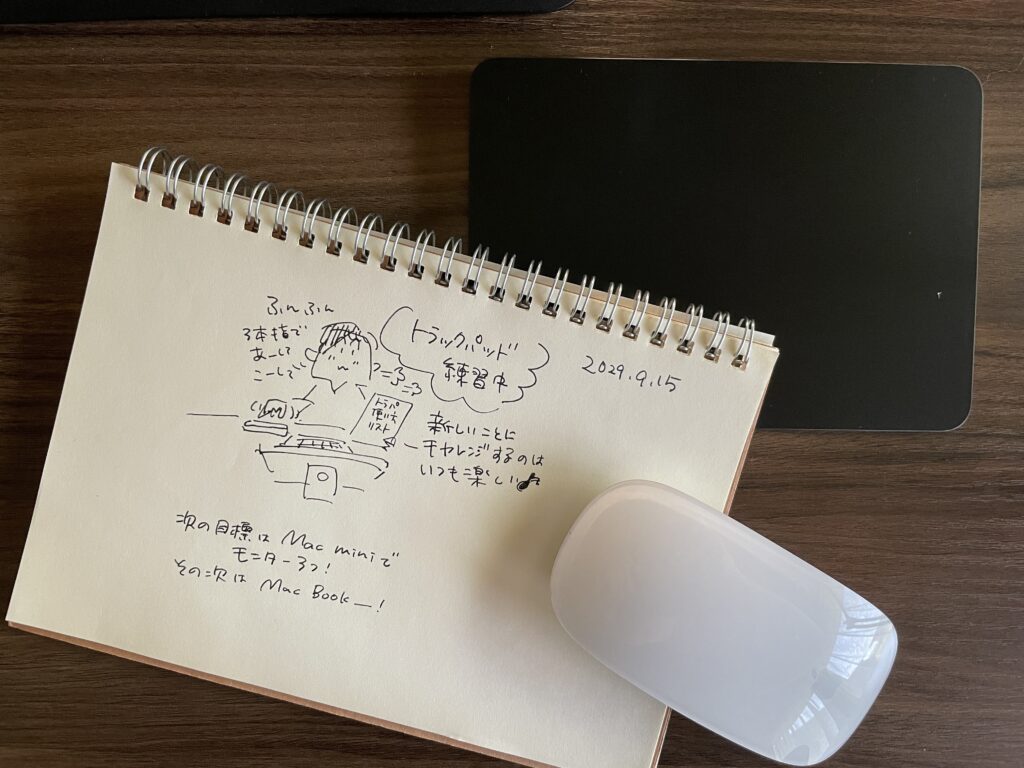 ふんふん
3本指で
あーして
こーして
トラックパッド
練習中
2029.9.15
トラパ
使い方
リスト
新しいことに
チャレンジするのは
いつも楽しい♪
次の目標は Mac miniで
モニター3つ!
その次は Mac Book—!